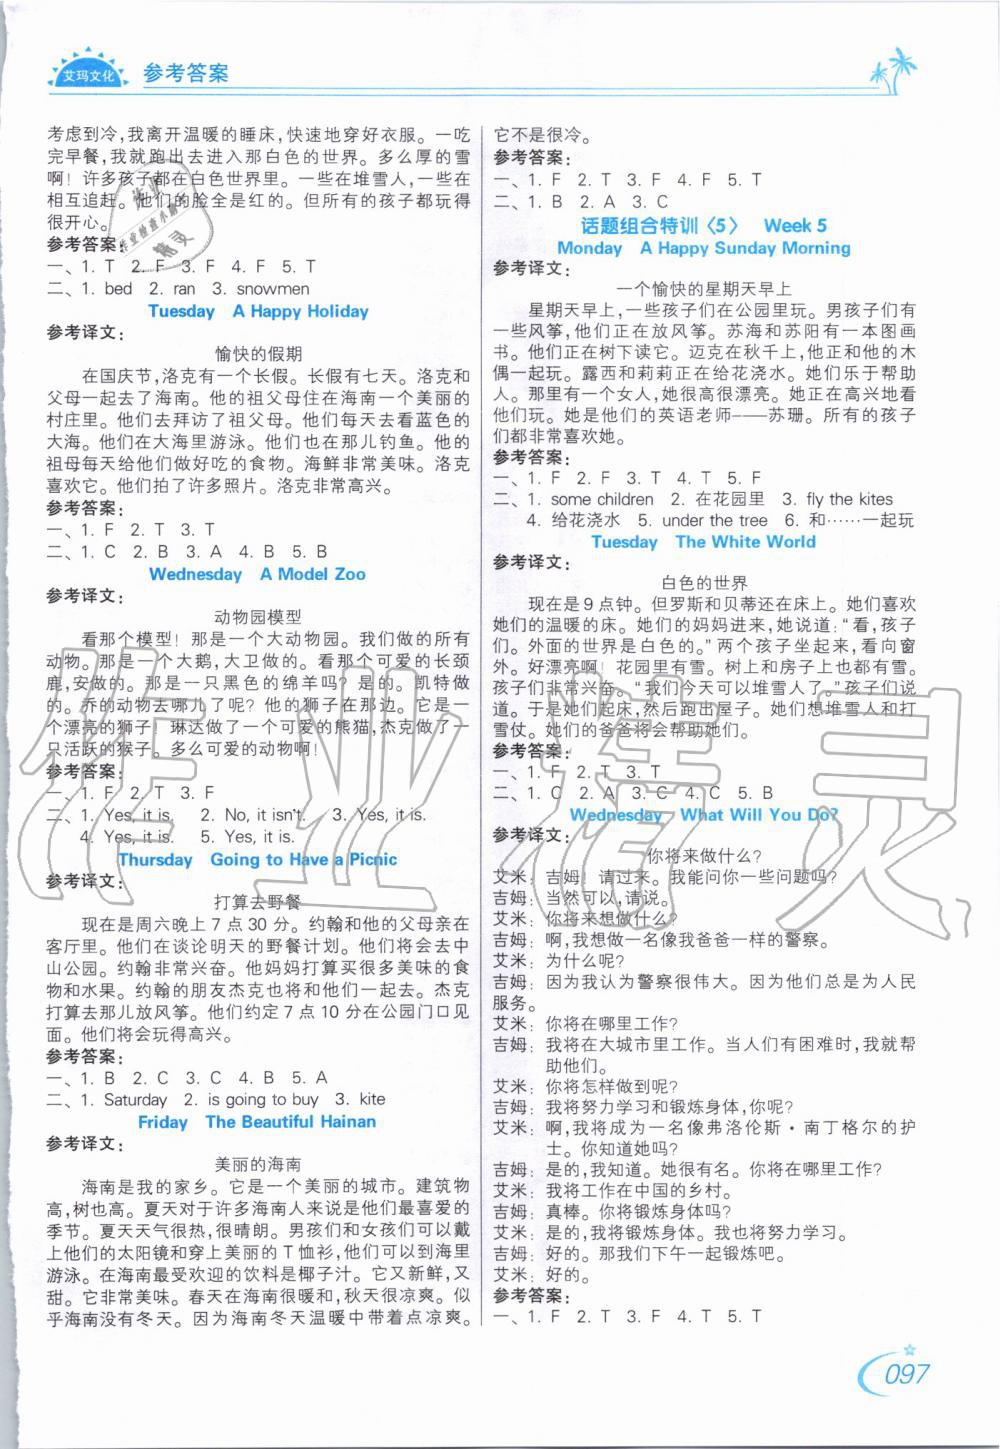 艾玛文化
参考答案
考虑到冷,我离开温暖的睡床,快速地穿好衣服。一吃
完早餐,我就跑出去进入那白色的世界。多么厚的雪
啊!许多孩子都在白色世界里。一些在堆雪人,一些在
相互追赶。他们的脸全是红的。但所有的孩子都玩得
很开心。
参考答案:
一、1. T 2. F 3. F 4. F 5. T
二、1. bed 2. ran 3. snowmen
Tuesday A Happy Holiday
参考译文:
愉快的假期
在国庆节,洛克有一个长假。长假有七天。洛克和
父母一起去了海南。他的祖父母住在海南一个美丽的
村庄里。他们去拜访了祖父母。他们每天去看蓝色的
大海。他们在大海里游泳。他们也在那儿钓鱼。他的
祖母每天给他们做好吃的食物。海鲜非常美味。洛克
喜欢它。他们拍了许多照片。洛克非常高兴。
参考答案:
一、1. F 2. T 3. T
二、1. C 2. B 3. A 4. B 5. B
Wednesday A Model Zoo
参考译文:
动物园模型
看那个模型!那是一个大动物园。我们做的所有
动物。那是一个大鹅,大卫做的。看那个可爱的长颈
鹿,安做的。那是一只黑色的绵羊吗?是的。凯特做
的。乔的动物去哪儿了呢?他的狮子在那边。它是一
个漂亮的狮子 琳达做了一个可爱的熊猫,杰克做了一
只活跃的猴子。多么可爱的动物啊!
参考答案:
一、1. F 2. T 3. F
二、1. Yes, it is. 2. No, it isn't. 3. Yes, it is.
4. Yes, it is. 5. Yes, it is.
Thursday Going to Have a Picnic
参考译文:
打算去野餐
现在是周六晚上7点30分。约翰和他的父母亲在
客厅里。他们在谈论明天的野餐计划。他们将会去中
山公园。约翰非常兴奋。他妈妈打算买很多美味的食
物和水果。约翰的朋友杰克也将和他们一起去。杰克
打算去那儿放风筝。他们约定7点10分在公园门口见
面。他们将会玩得高兴。
参考答案:
一、1. B 2. C 3. C 4. B 5. A
二、1. Saturday 2. is going to buy 3. kite
Friday The Beautiful Hainan
参考译文:
美丽的海南
海南是我的家乡。它是一个美丽的城市。建筑物
高,树也高。夏天对于许多海南人来说是他们最喜爱的
季节。夏天天气很热,很晴朗。男孩们和女孩们可以戴
上他们的太阳镜和穿上美丽的T恤衫,他们可以到海里
游泳。在海南最受欢迎的饮料是椰子汁。它又新鲜,又
甜。它非常美味。春天在海南很暖和,秋天很凉爽。似
乎海南没有冬天。因为海南冬天温暖中带着点凉爽。
它不是很冷。
参考答案:
一、1. F 2. T 3. F 4. F 5. T
二、1. B 2. A 3. C
话题组合特训〈5〉 Week 5
Monday A Happy Sunday Morning
参考译文:
一个愉快的星期天早上
星期天早上,一些孩子们在公园里玩。男孩子们有
一些风筝,他们正在放风筝。苏海和苏阳有一本图画
书。他们正在树下读它。迈克在秋千上,他正和他的木
偶一起玩。露西和莉莉正在给花浇水。她们乐于帮助
人。那里有一个女人,她很高很漂亮。她正在高兴地看
着他们玩。她是他们的英语老师——苏珊。所有的孩子
们都非常喜欢她。
参考答案:
一、1. F 2. F 3. T 4. T 5. F
二、1. some children 2. 在花园里 3. fly the kites
4. 给花浇水 5. under the tree 6. 和……一起玩
Tuesday The White World
参考译文:
白色的世界
现在是9点钟。但罗斯和贝蒂还在床上。她们喜欢
她们的温暖的床。她们的妈妈进来,她说道:“看,孩子
们。外面的世界是白色的。”两个孩子坐起来,看向窗
外。好漂亮啊!花园里有雪。树上和房子上也都有雪。
孩子们非常兴奋。“我们今天可以堆雪人了。”孩子们说
道。于是她们起床,然后跑出屋子。她们想堆雪人和打
雪仗。她们的爸爸将会帮助她们。
参考答案:
一、1. F 2. T 3. T
二、1. C 2. A 3. C 4. C 5. B
Wednesday What Will You Do?
参考译文:
你将来做什么?
艾米:吉姆!请过来。我能问你一些问题吗?
吉姆:当然可以,请说。
艾米:你将来想做什么?
吉姆:啊,我想做一名像我爸爸一样的警察。
艾米:为什么呢?
吉姆:因为我认为警察很伟大。因为他们总是为人民
服务。
艾米:你将在哪里工作?
吉姆:我将在大城市里工作。当人们有困难时,我就帮
助他们。
艾米:你将怎样做到呢?
吉姆:我将努力学习和锻炼身体,你呢?
艾米:啊,我将成为一名像弗洛伦斯·南丁格尔的护
士。你知道她吗?
吉姆:是的,我知道。她很有名。你将在哪里工作?
艾米:我将工作在中国的乡村。
吉姆:真棒。你将锻炼身体吗?
艾米:是的,我将锻炼身体。我也将努力学习。
吉姆:好的。那我们下午一起锻炼吧。
艾米:好的。
参考答案:
一、1. F 2. T 3. F 4. T 5. T
097
作业精灵